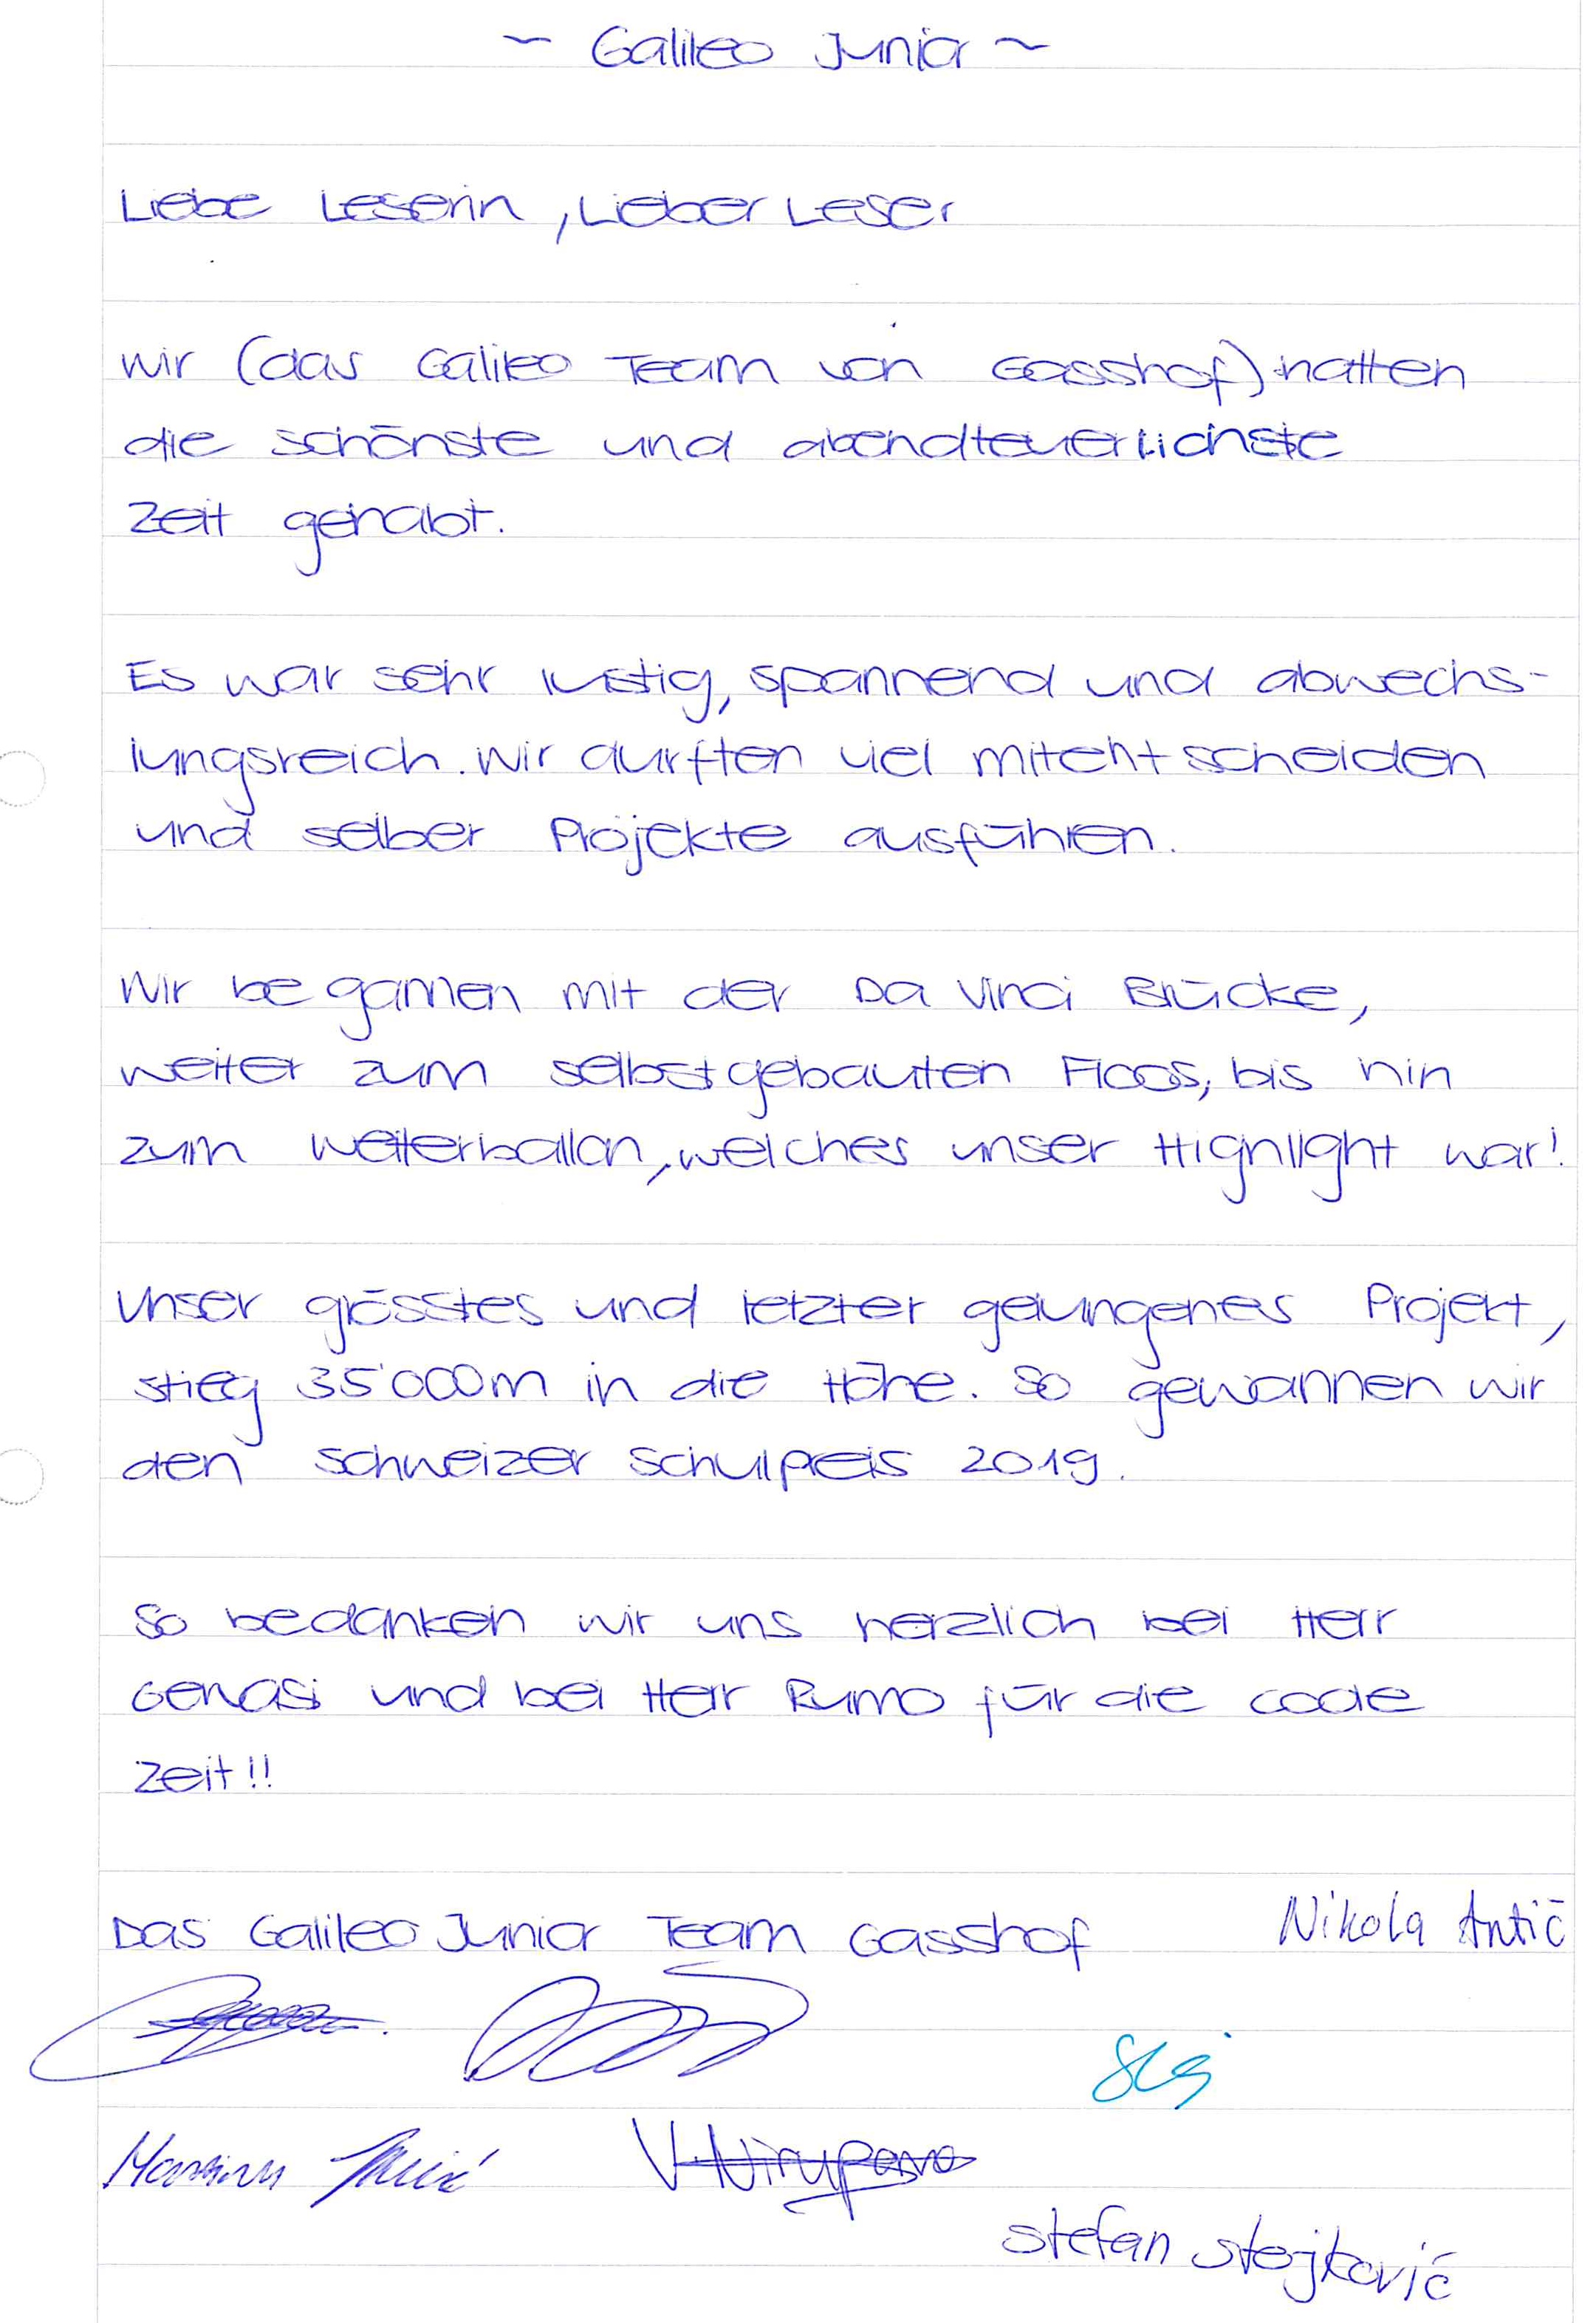 ~ Galileo Junior ~
Liebe Leserin, Lieber Leser
Wir (das Galileo Team von Gasshof) hatten
die schönste und abendteuerlichste
Zeit gehabt.
Es war sehr lustig, spannend und abwechs-
lungsreich. Wir durften viel mitentscheiden
und selber Projekte ausführen.
Wir begannen mit der Da Vinci Brücke,
weiter zum selbstgebauten Floos, bis hin
zum Wetterballon, welches unser Highlight war!
Unser grösstes und letzter gelungenes Projekt,
stieg 35'000m in die Höhe. So gewannen wir
den Schweizer Schulpreis 2019.
So bedanken wir uns herzlich bei Herr
Genasi und bei Herr Rumo für die coole
Zeit!!
Das Galileo Junior Team Gasshof
Nikola Antić
V. Nirupana
Stefan Stojković